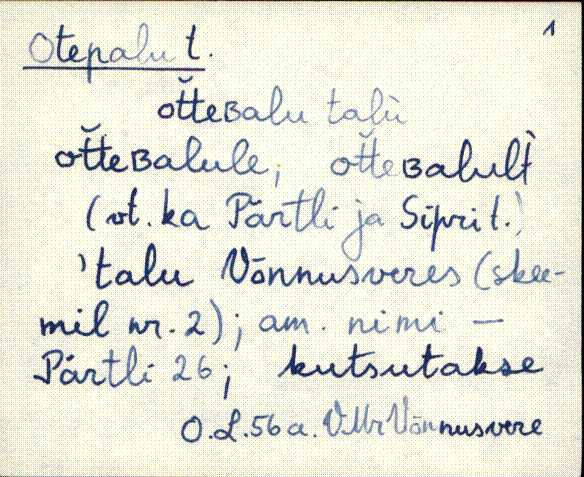 1
Otepalu t.
ot̆t̆eʙalu talù
ot̆t̆eʙalule, ot̆t̆eʙalul't̀
(vt. ka Pärtli ja Sipri t.)
'talu Võnnusveres (skee-
mil nr. 2); am. nimi —
Pärtli 26; kutsutakse
O.L. 56 a. V.Mr Võnnusvere